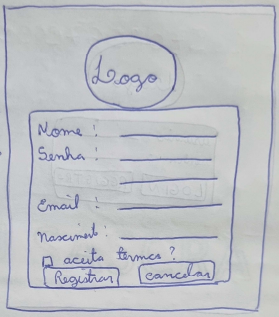 Logo
Nome :
Senha :
Email :
Nasciment :
aceita termos ?
Registrar cancelar